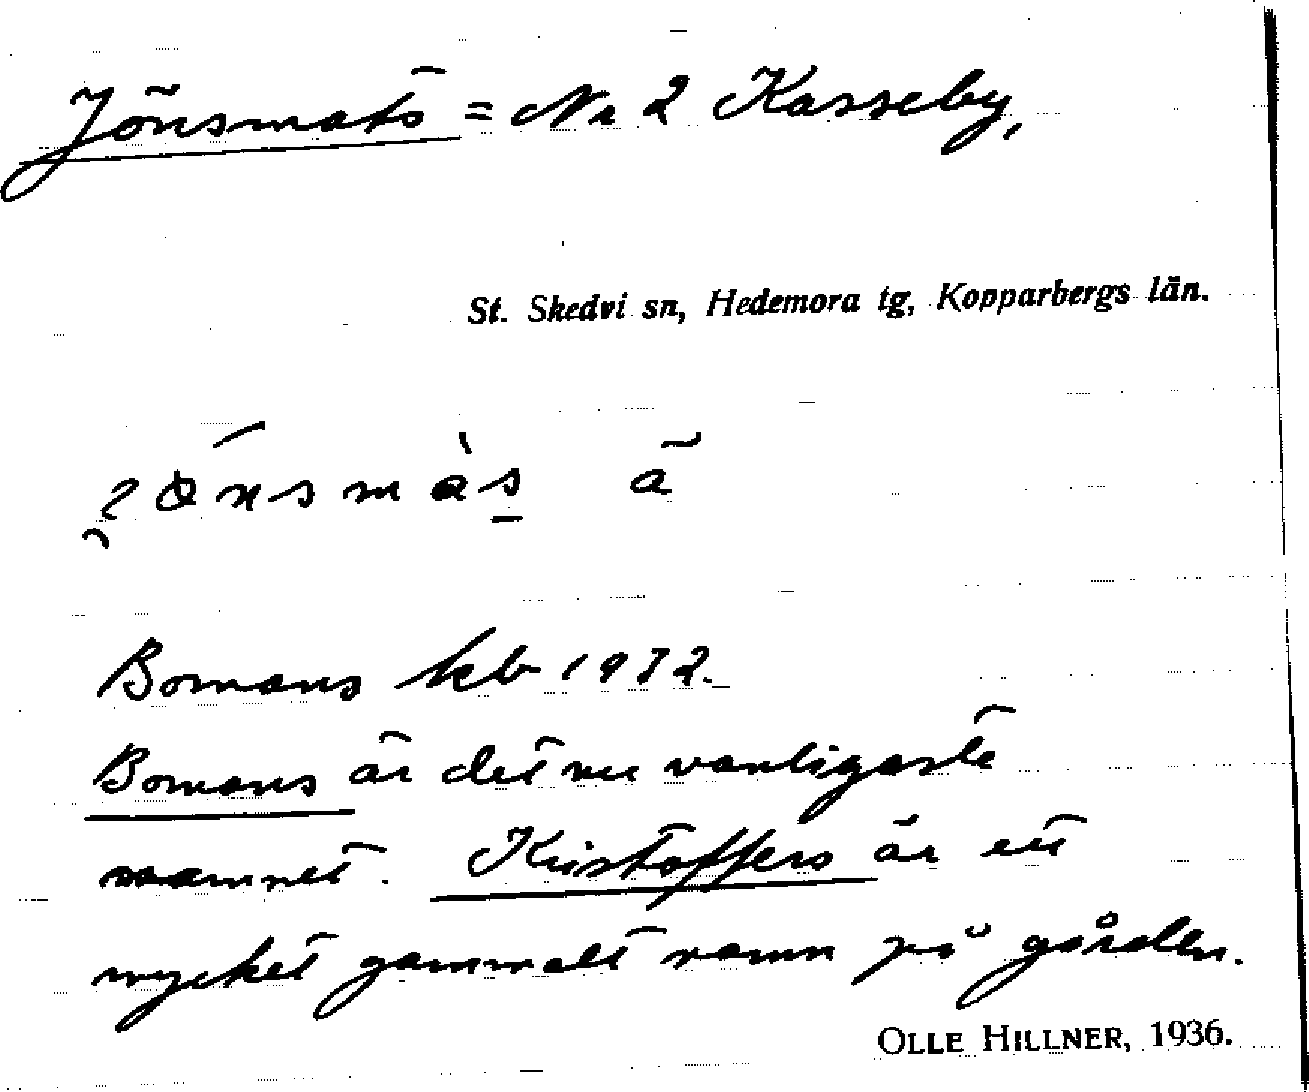 Jönsmats = Nr 2 Kasseby,
St. Skedvi sn, Hedemora tg, Kopparbergs län.
Bomans kb 1932.
Bomans är det nu vanligaste
namnet. Kristoffers är ett
mycket gammalt namn på gården.
OLLE HILLNER, 1936.